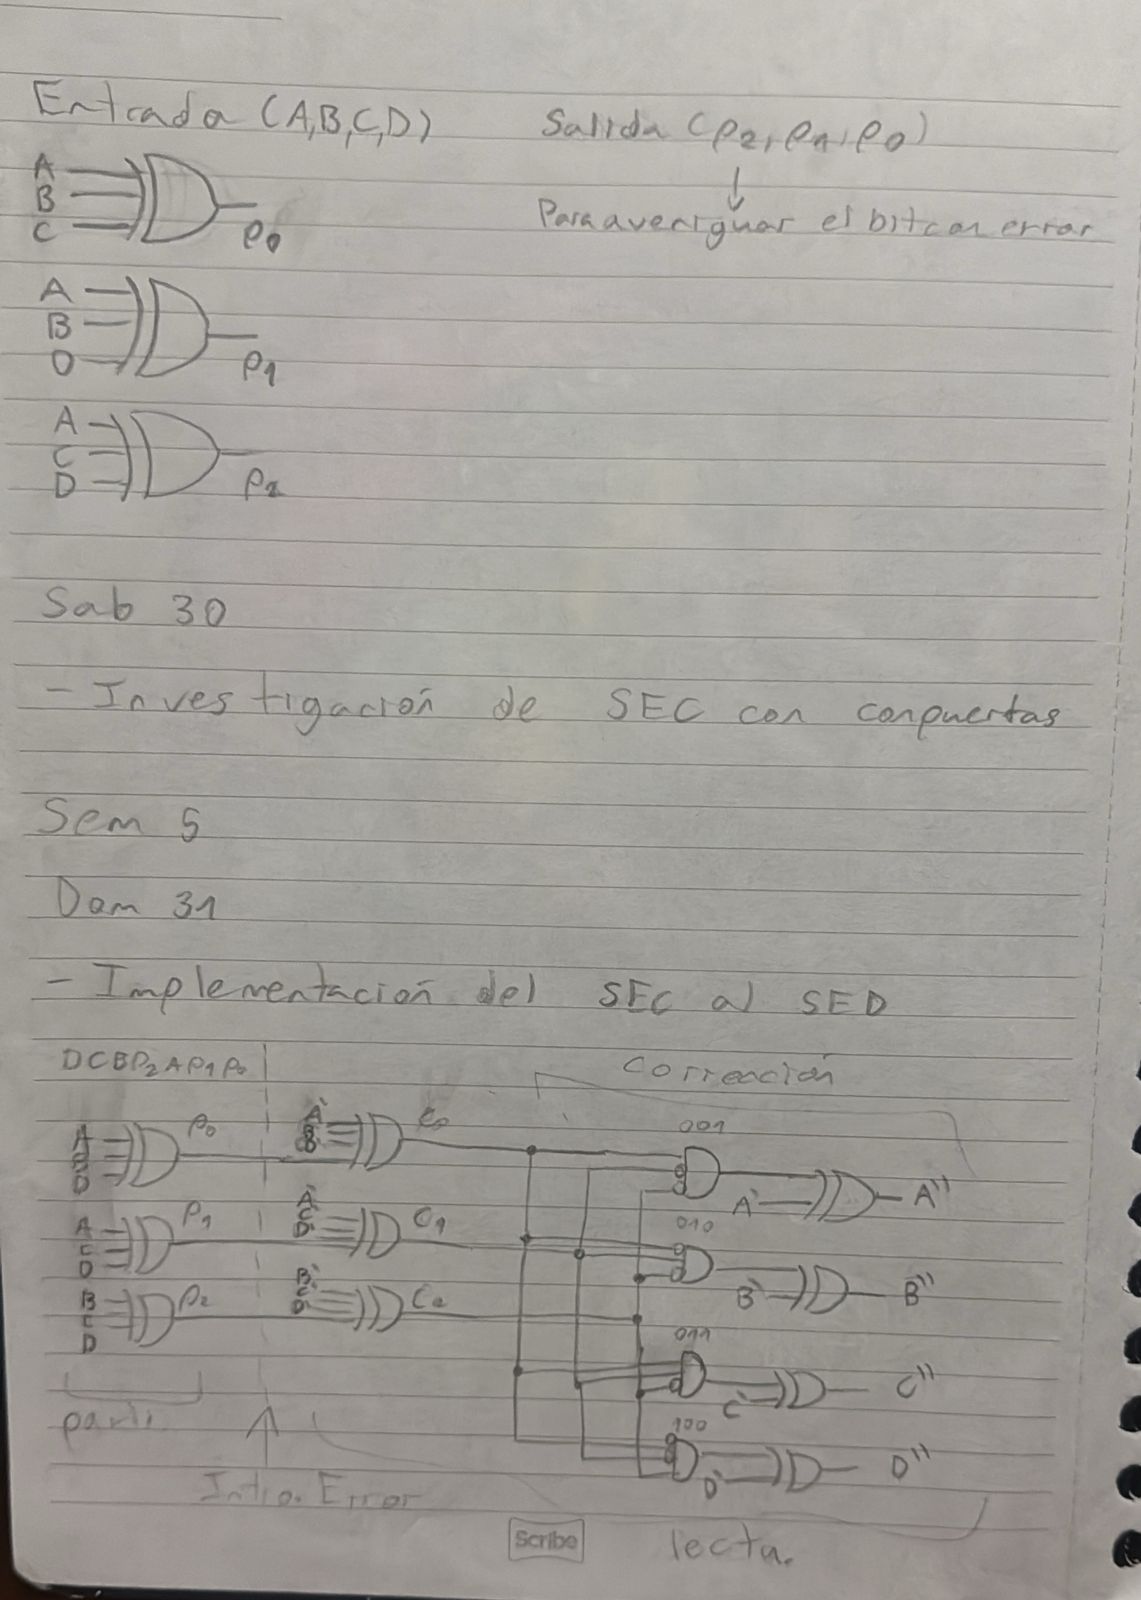 Entrada (A,B,C,D) Salida (p2, p1, p0)
Para averiguar el bit con error
A
B
C
p0
A
B
D
p1
A
C
D
p2
Sab 30
- Investigación de SEC con conpuertas
Sem 5
Dom 31
- Implementación del SEC al SED
DCBP2AP1P0
Corrección
A
D
P0
A'
001
A'
A''
A
C
D
P1
A'
C'
D'
C1
010
B'
B''
B
C
D
P2
B'
C'
D'
C2
011
C'
C''
100
D'
D''
Intro. Error
Scribe
lecta.